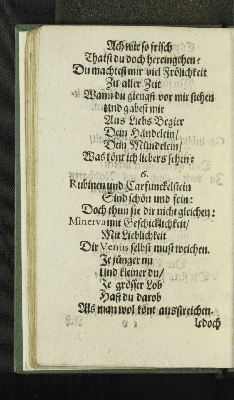 Ach wie so frisch
Thatst du doch hereingehen?
Du machtest mir viel Frölichkeit
Zu aller Zeit
Wann du giengst vor mir stehen
Und gabest mir
Aus Liebs Begier
Dein Händelein/
Dein Mündelein/
Was könt ich liebers sehen?
6.
Rubinen und Carfunckelstein
Sind schön und fein:
Doch thun sie dir nicht gleichen:
Minerva mit Geschicklichkeit/
Mit Lieblichkeit
Dir Venus selbst muß weichen.
Je jünger nu
Und kleiner du/
Je grösser Lob
Hast du darob
Als man wol könt ausstreichen.
Jedoch